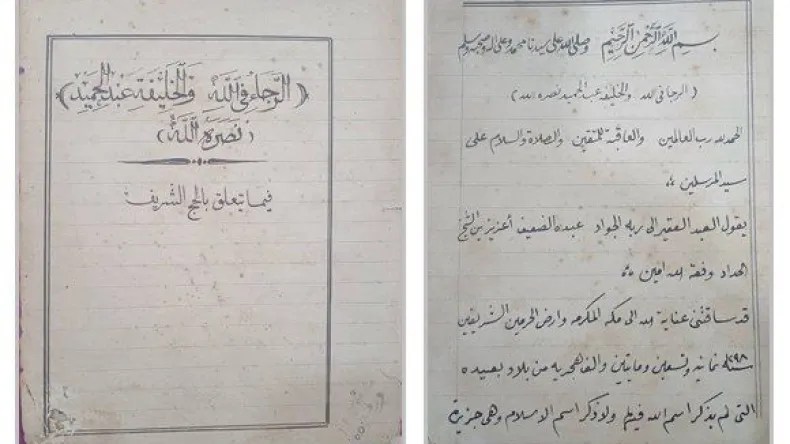 ﴿الرجاء في الله والخليفة عبد الحميد﴾
(نصره الله)
فيما يتعلق بالحج الشريف
بسم الله الرحمن الرحيم وصلى الله على سيدنا محمد وعلى اله وصحبه وسلم
(الرجا في الله والخليفة عبد الحميد نصره الله)
الحمد لله رب العالمين والعاقبة للمتقين والصلاة والسلام على
سيد المرسلين
يقول العبد الفقير الى ربه الجواد عبده الضعيف أعزيز بن الشيخ
الحداد وفقه الله امين
قد ساقتنى عناية الله الى مكة المكرمه وارض الحرمين الشريفين
سنة ١٢٩٨ ثمانيه وتسعين ومايتين والف هجريه من بلاد بعيده
التى لم يذكر اسم الله فيها ولا ذكر اسم الاسلام وهى جزيرة